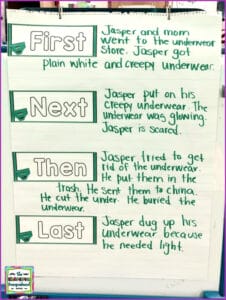 First
Jasper and mom
went to the underwear
store. Jasper got
plain white and creepy underwear.
Next
Jasper put on his
creepy underwear. The
underwear was glowing.
Jasper is scared.
Then
Jasper tried to get
rid of the underwear.
He put them in the
trash. He sent them to china.
He cut the under. He buried the
underwear.
Last
Jasper dug up his
underwear because
he needed light.